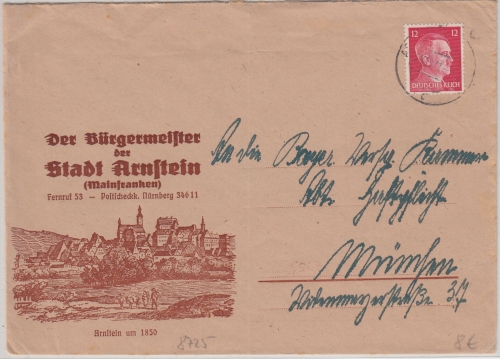 12 12
DEUTSCHES REICH
Der Bürgermeister
der
Stadt Arnstein
(Mainfranken)
Fernruf 53 — Postscheckk. Nürnberg 34611
An die Bayer. Vers. Kammer
Abt. Haftpflicht
München
37
Arnstein um 1850
8725
8€